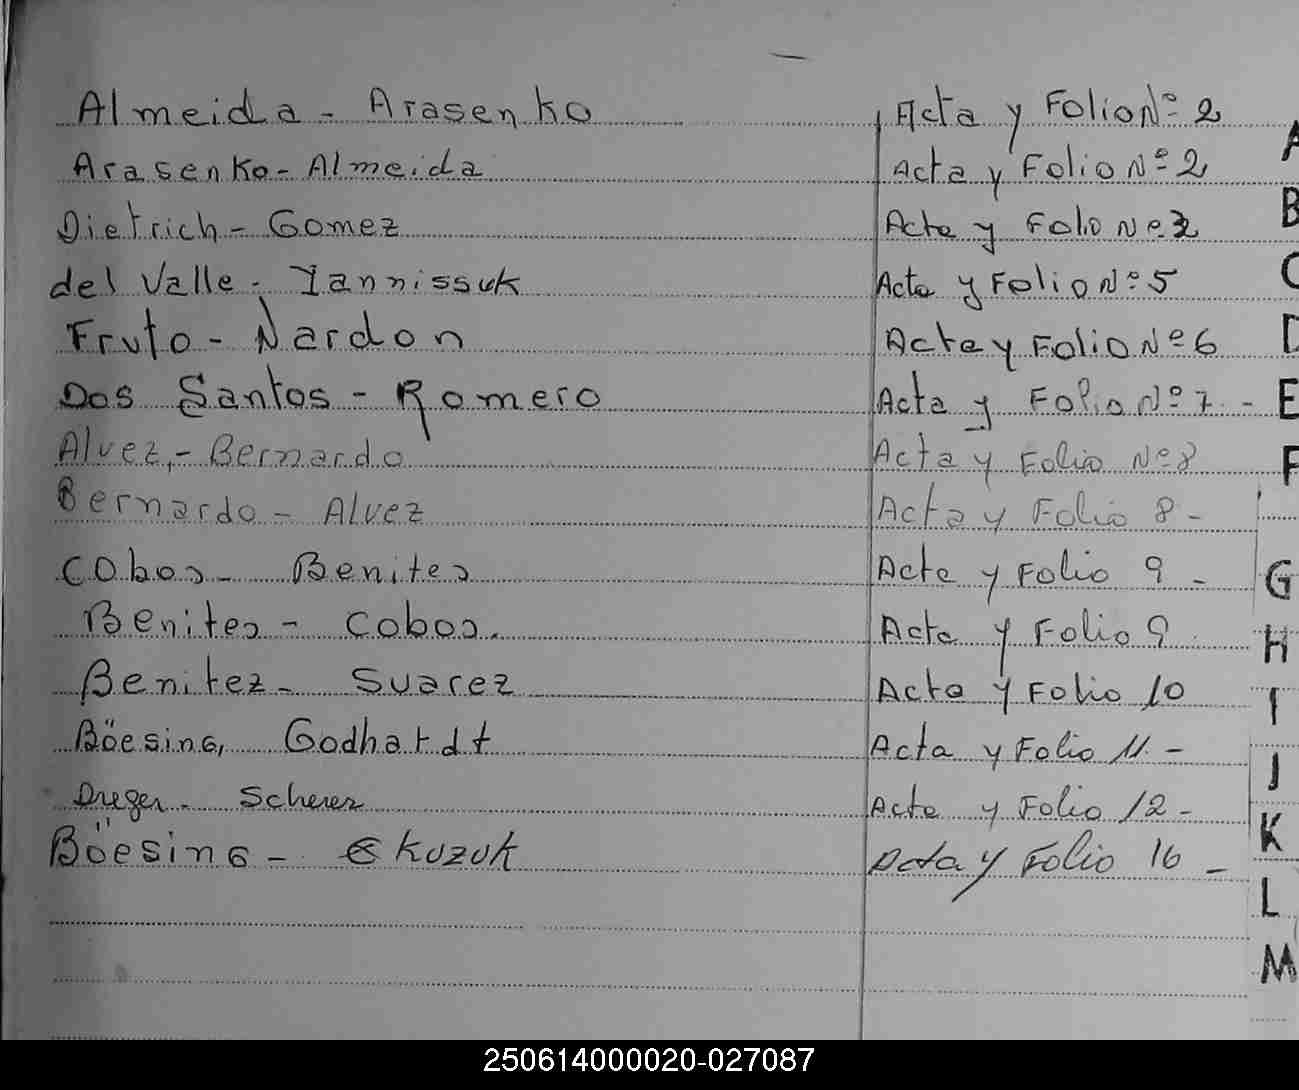 Almeida - Arasenko Acta y Folio Nº 2
Arasenko - Almeida Acta y Folio Nº 2
Dietrich - Gomez Acta y Folio Nº
del Valle - Iannissuk Acta y Folio Nº 5
Fruto - Nardon Acta y Folio Nº 6
Dos Santos - Romero Acta y Folio Nº 7 -
Alvez, - Bernardo Acta y Folio Nº 8
Bernardo - Alvez Acta y Folio 8 -
Cobos - Benites Acta y Folio 9 -
Benites - Cobos. Acta y Folio 9
Benitez - Suarez Acta y Folio 10
Böesing, Godhardt Acta y Folio 11 -
Dreger - Scherer Acta y Folio 12 -
Böesing - Kuzuk Acta y Folio 16 -
A
B
C
D
E
F
G
H
I
J
K
L
M
250614000020-027087